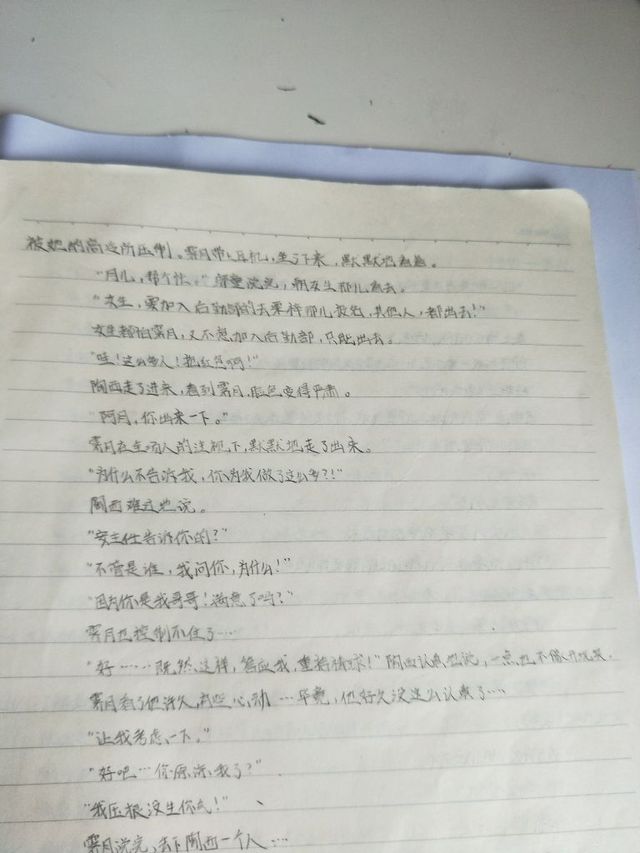 被她的高冷所压制。霁月带上耳机，坐了下来，默默地看着。
"月儿，帮个忙。"说完，朝女生那儿看去。
"女生，要加入后勤部的去栗梓那儿报名，其他人，都出去！"
女生都怕霁月，又不想加入后勤部，只能出去。
"哇！这么多人！抱歉啊！"
陶西走了进来，看到霁月，脸色变得严肃。
"阿月，你出来一下。"
霁月在全场人的注视下，默默地走了出来。
"为什么不告诉我，你为我做了这么多？！"
陶西难过地说。
"安主任告诉你的？"
"不管是谁，我问你，为什么！"
"因为你是我哥哥！满意了吗？"
霁月也控制不住了…
"好……既然这样，答应我，重拾排球！"陶西认真地说，一点也不像开玩笑。
霁月看了他许久，有些心动…毕竟，他好久没这么认真了…
"让我考虑一下。"
"好吧…你原谅我了？"
"我压根没生你气！"
霁月说完，丢下陶西一个人…